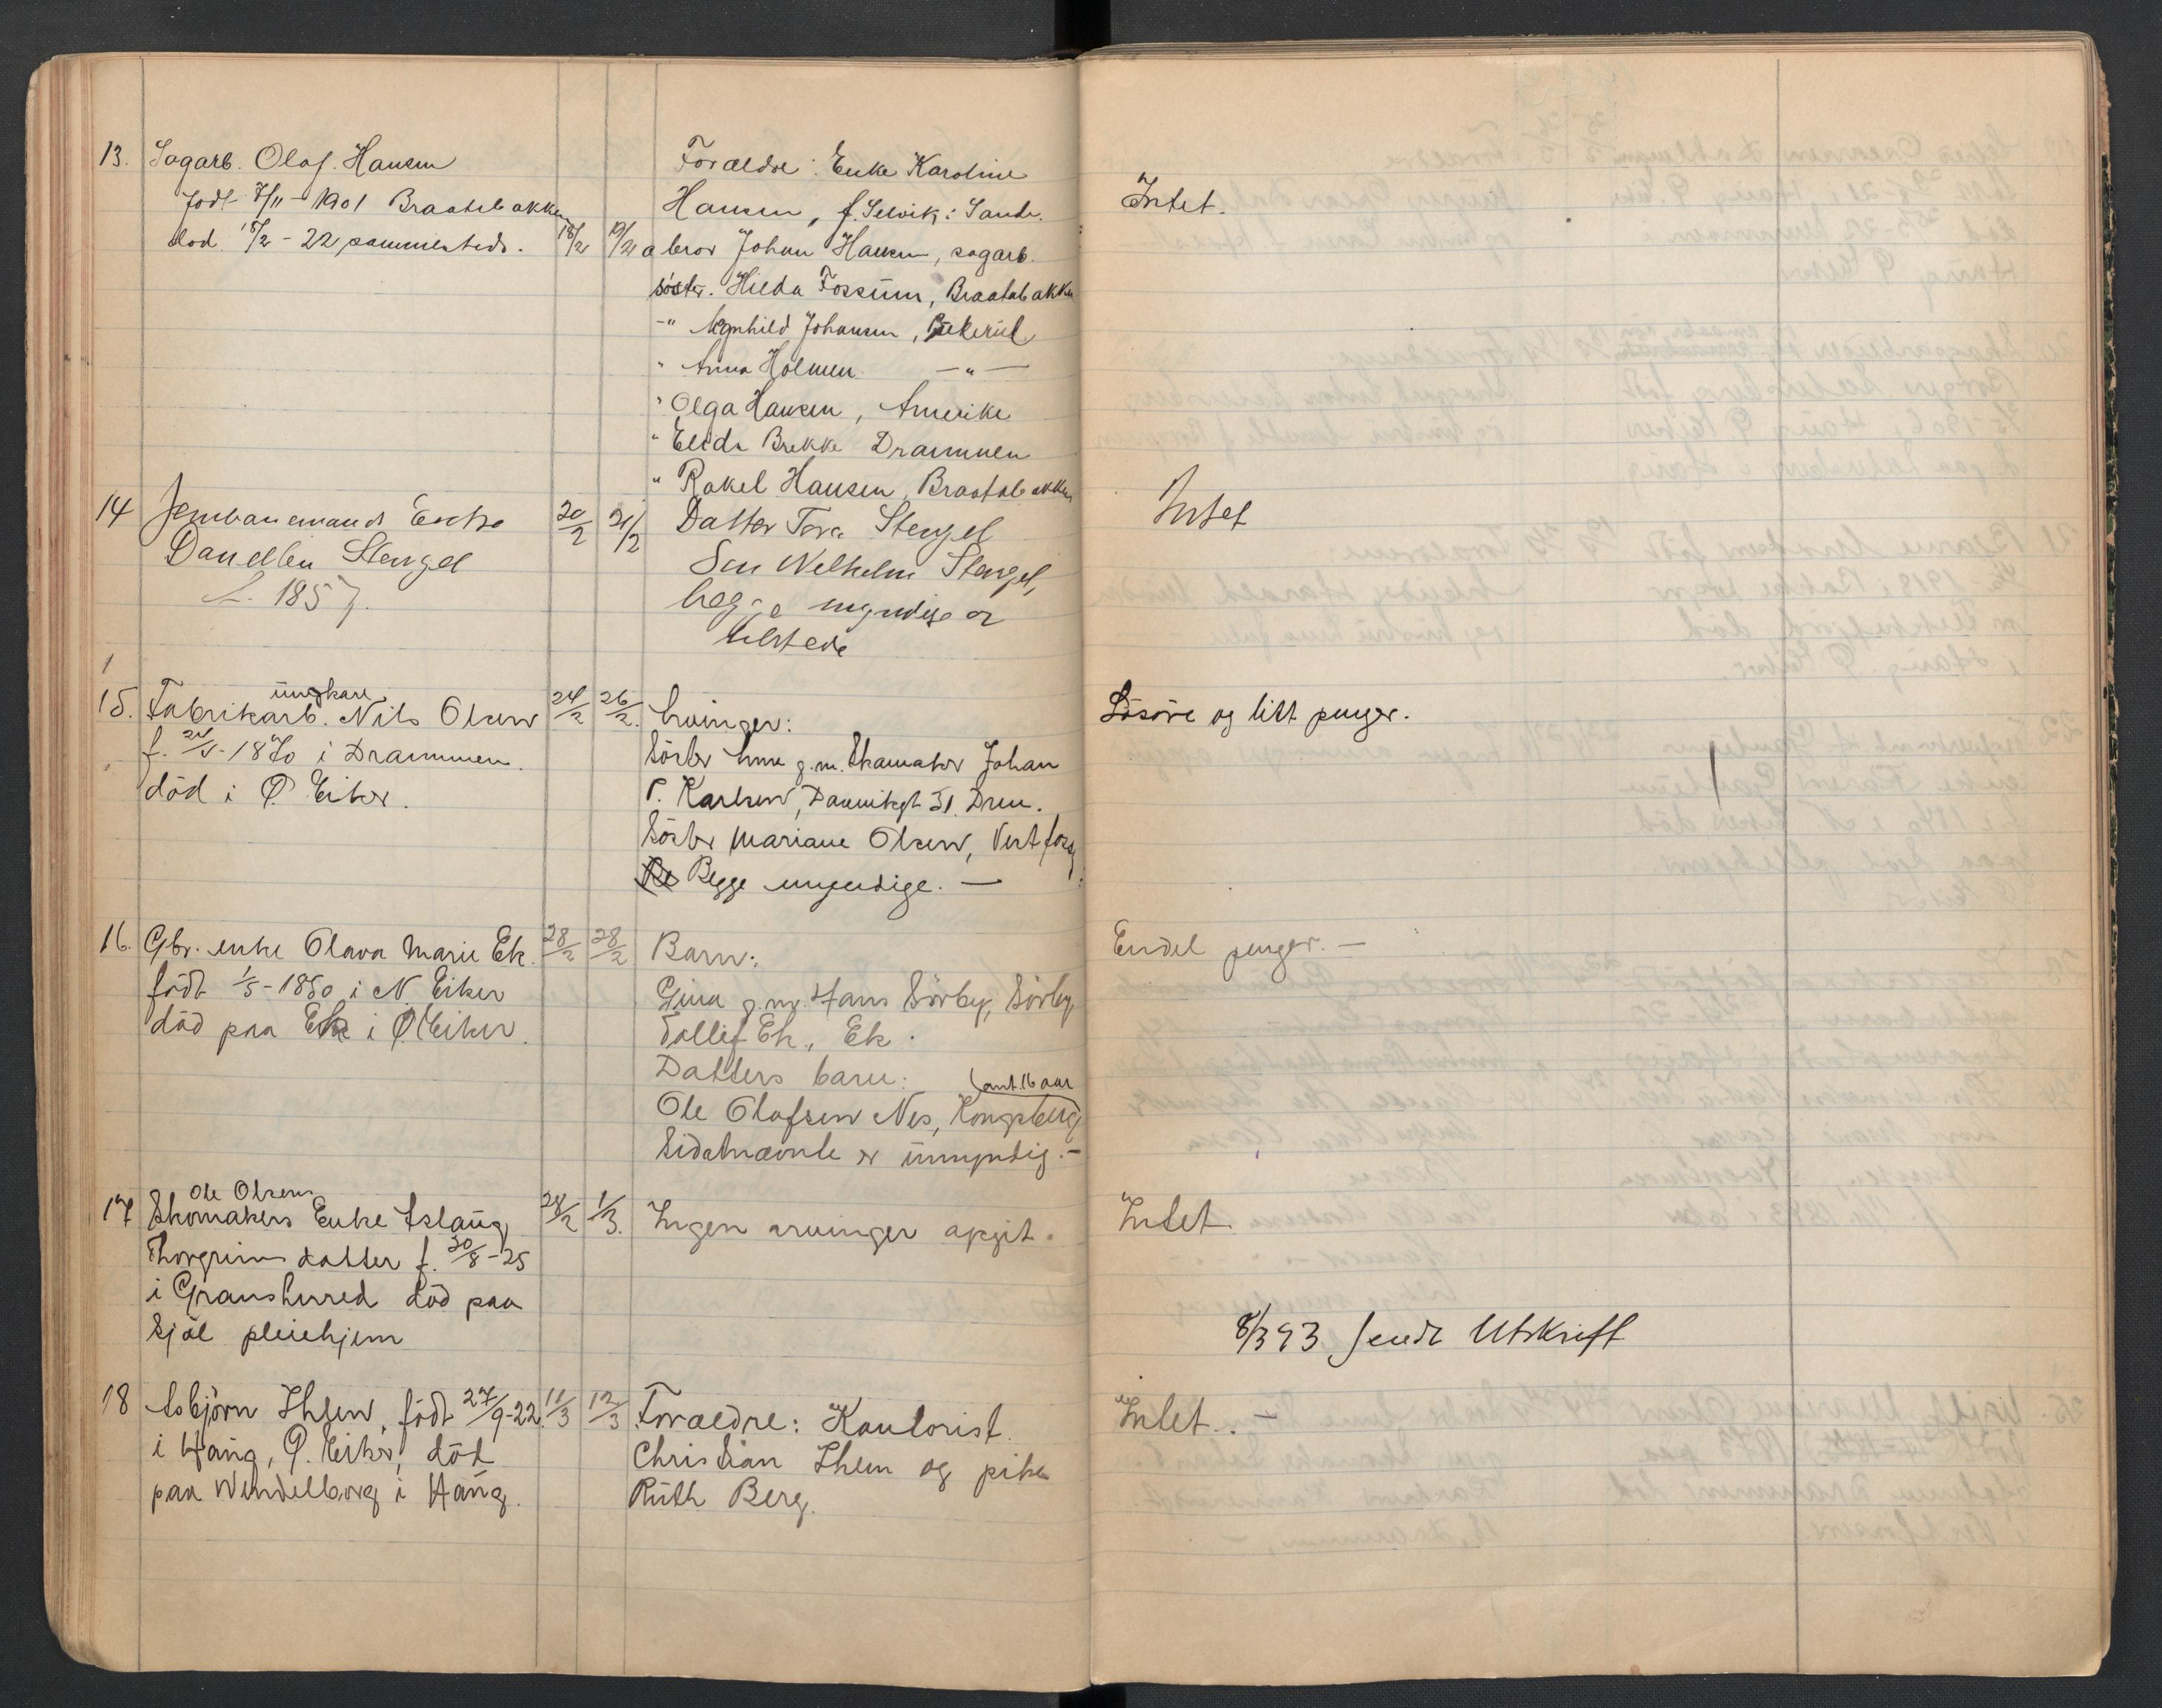 13. Sagarb. Olaf. Hansen
Født 7/11 - 1901 Braatabakken
død. 18/2 - 22 sammesteds. 18/2 19/2
Foræld­re: Enke Karoline
Hansen, f. Selvik i Sande.
bror Johan Hansen, sagarb.
söster. Hilda Fossum, Braatabakken
-" Ragnhild Johansen,
" Anna Holmen -"-
" Olga Hansen, Amerika
" Elida Brekke Drammen
" Rakel Hansen, Braatabakken
Intet.
14 Jernbanemands Enke 20/2 21/2
Stengel
f. 1857.
Datter Tora Stengel
Søn Wilhelm Stengel,
begge myndige og
tilstede
Intet
15. Fabrikarb. ungkarl Nils Olsen 24/2 26/2.
f. 24/5 - 1870 i Drammen.
död i Ø Eiker.
Arvinger:
Söster Anne g.m. Skomaker Johan
P. Karlsen, Danvikgt 31. Drm.
Söster Mariane Olsen, Vestfossen
Be Begge myndige. —
Lösöre og litt penger.
16. Gbr. enke Olava Marie Ek. 28/2 28/2
född 1/5 - 1850 i N Eiker
död paa Ek i Ø Eiker.
Barn:
Gina g.m. Hans Sörby, Sörby
Tollef Ek, Ek.
Datters barn:
Ole Olafsen Nes, Kongsberg (ant. 16 aar
Sidstnævnte er umyndig. -
Endel penger. —
17 Skomakers Ole Olsens Enke Aslaug 28/2 1/3.
Thorgrims datter f. 30/8 - 25
i Gransherred död paa
Sjöl pleiehjem
Ingen arvinger opgit.
Intet.
8/3 43 sendt Utskrift
18 Asbjörn Ihlen, född 27/9 - 22. 11/3 12/3
i Haug, Ø. Eiker, död
paa Wendelborg i Haug.
Forældre: Kontorist.
Christian Ihlen og pike
Ruth Berg.
Intet. —